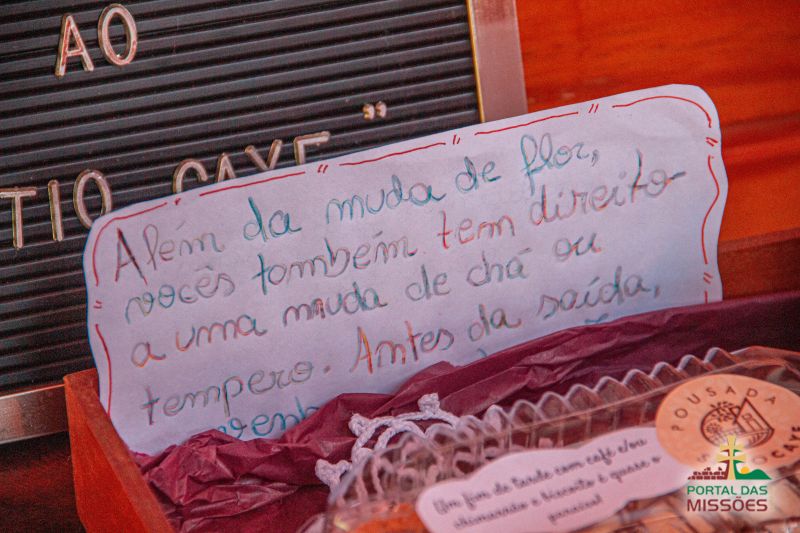 AO
TIO CAYE"
Além da muda de flor,
vocês também tem direito
a uma muda de chá ou
tempero. Antes da saída,
Um fim de tarde com café e/ou
chimarrão e biscoito é quase o
paraíso!
POUSADA
PORTAL DAS
MISSÕES